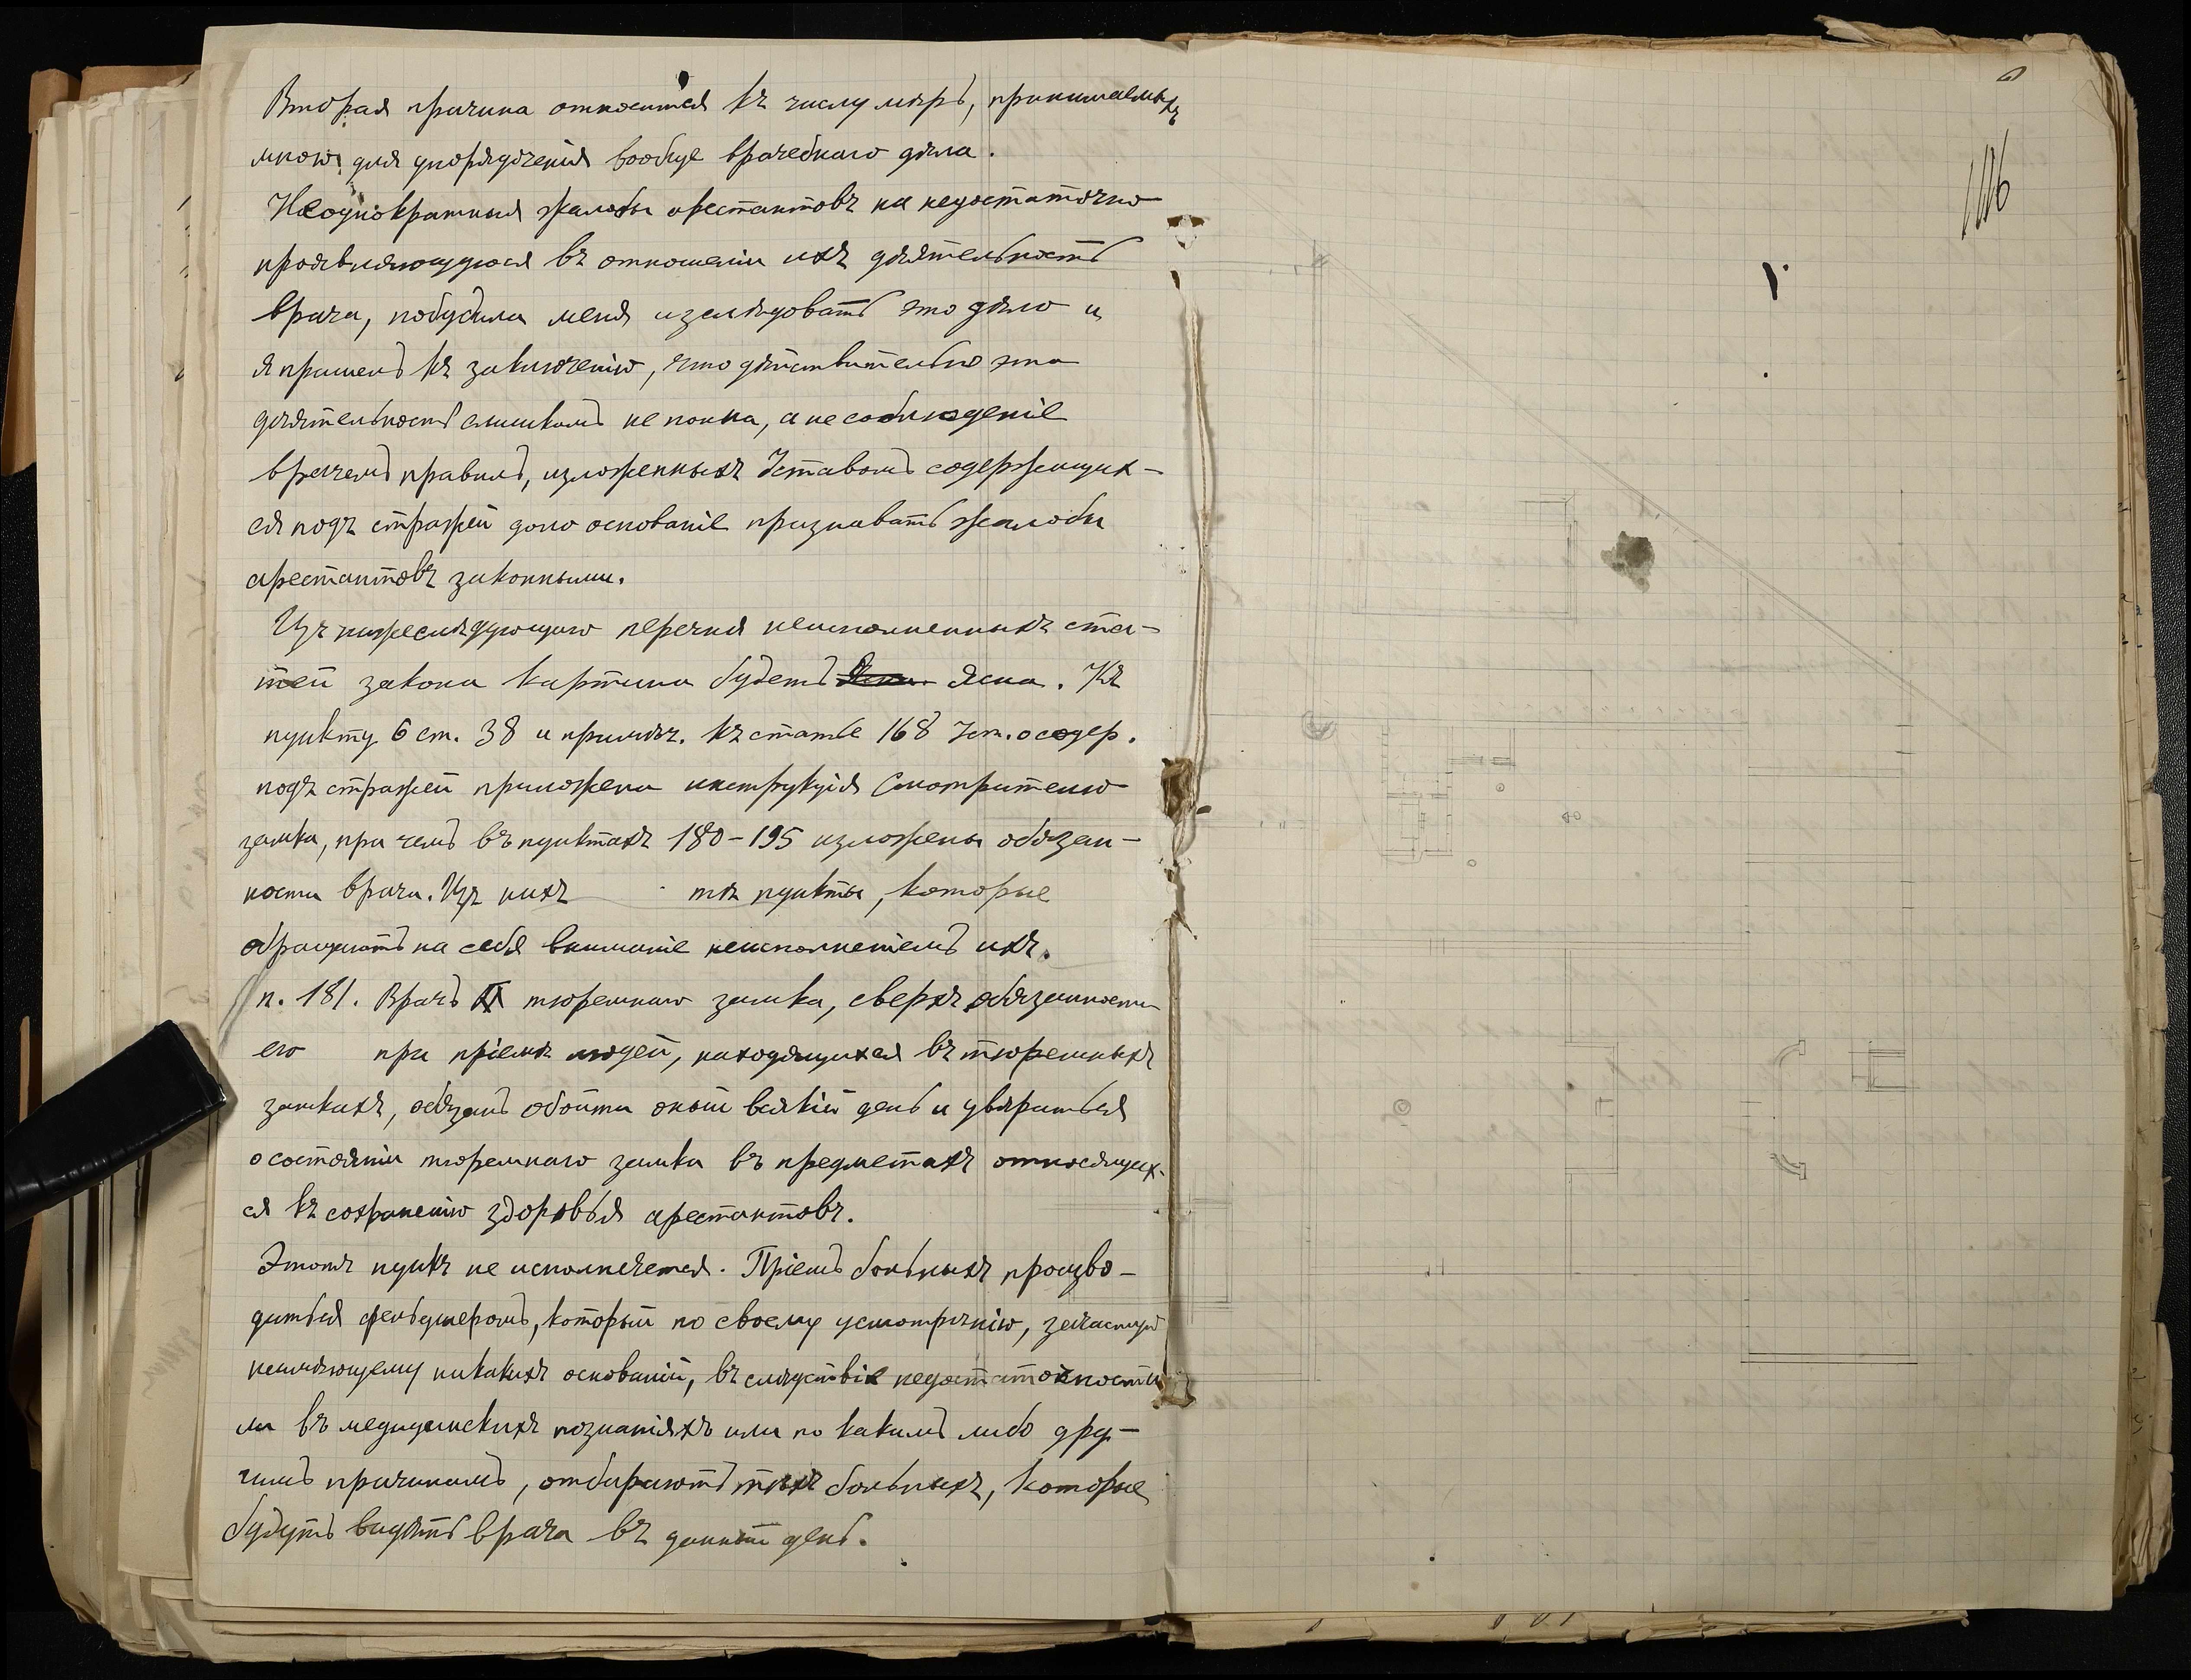 Вторая причина относится къ числу мѣръ, принимаемыхъ
мною для упорядоченія вообще врачебнаго дѣла.
Неоднократныя жалобы арестантовъ на недостаточно
проявляющуюся въ отношеніи ихъ дѣятельность
врача, побудили меня изслѣдовать это дѣло и
я пришелъ къ заключенію, что дѣйствительно эта
дѣятельность слишкомъ не полна, а не соблюденіе
врачемъ правилъ, изложенныхъ Уставомъ содержащих-
ся подъ стражей дало основаніе признавать жалобы
арестантовъ законными.
Изъ нижеслѣдующаго перечня неисполненныхъ ста-
тей закона картина будетъ ясна. Къ
пункту 6 ст. 38 и примѣч. къ статье 168 Уст. о содер.
подъ стражей приложена инструкція Смотрителю
замка, при чемъ въ пунктахъ 180-195 изложены обязан-
ности врача. Изъ нихъ тѣ пункты, которые
обращаютъ на себя вниманіе неисполненіемъ ихъ.
п. 181. Врачъ тюремнаго замка, сверхъ обязанности
его при пріемѣ людей, находящихся въ тюремныхъ
замкахъ, обязанъ обойти оный всякій день и увѣриться
о состояніи тюремнаго замка въ предметахъ относящих-
ся къ сохраненію здоровья арестантовъ.
Этотъ пунктъ не исполняется. Пріемъ больныхъ произво-
дится фельдшеромъ, который по своему усмотрѣнію, зачастую
неимѣющему никакихъ основаній, въ слѣдствіе недостаточности
ли въ медицинскихъ познаніяхъ или по какимъ либо дру-
гимъ причинамъ, отбираютъ тѣхъ больныхъ, которые
будутъ видѣть врача въ данный день.
116